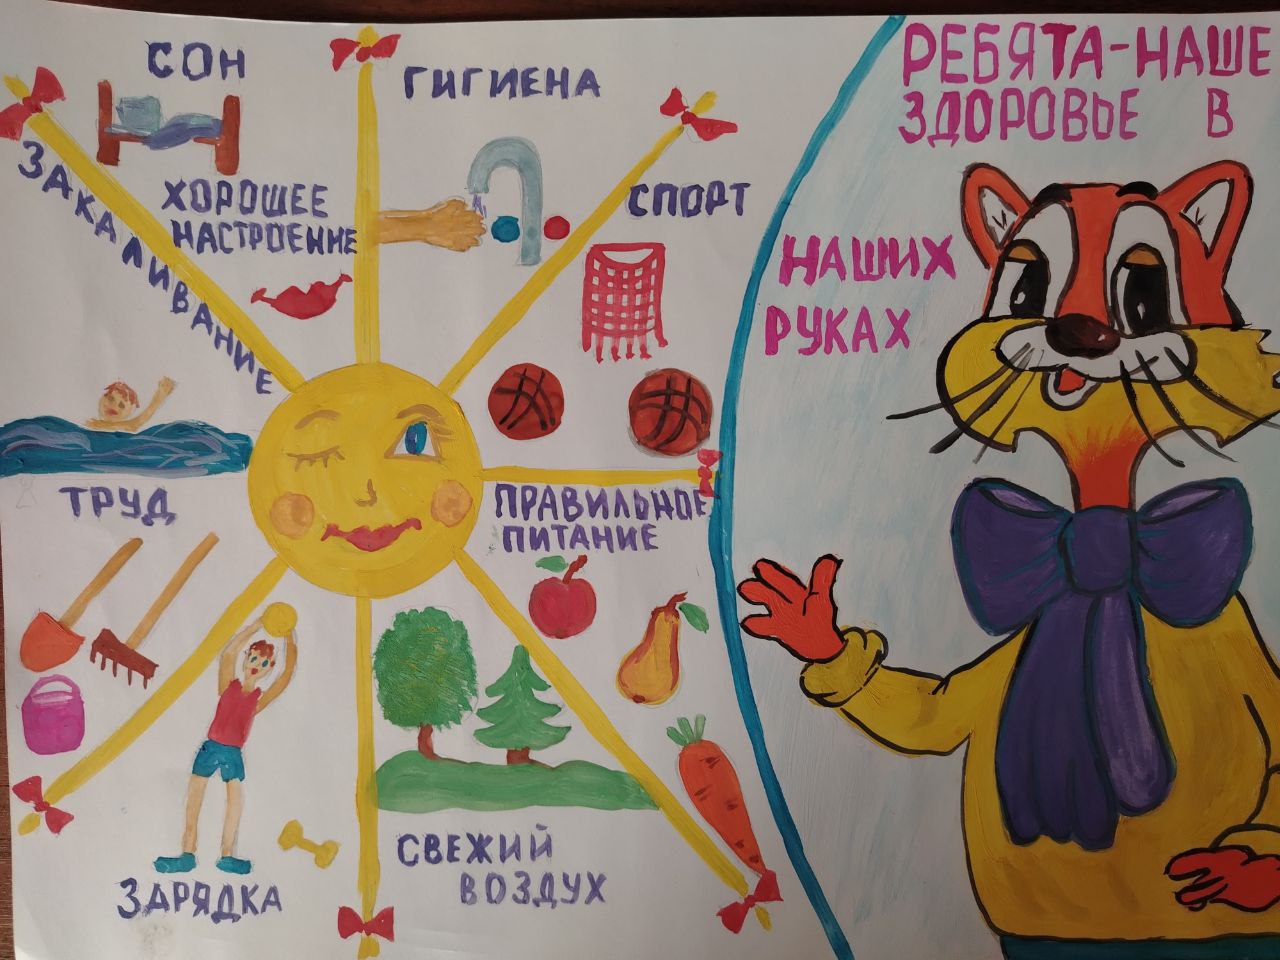 СОН
ГИГИЕНА
РЕБЯТА-НАШЕ
ЗДОРОВЬЕ В
НАШИХ
РУКАХ
ЗАКАЛИВАНИЕ
ХОРОШЕЕ
НАСТРОЕНИЕ
СПОРТ
ТРУД
ПРАВИЛЬНОЕ
ПИТАНИЕ
ЗАРЯДКА
СВЕЖИЙ
ВОЗДУХ